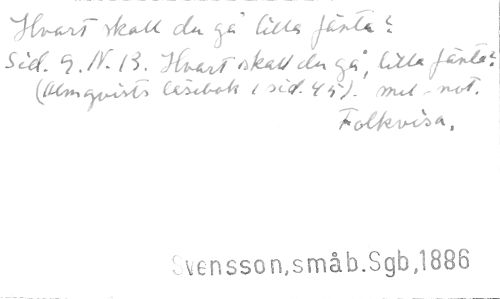 Hvart skall du gå lilla jänta?
Sid. 9. N. 13. Hvart skall du gå, lilla jänta?
(Almqvists Läsebok 1 sid. 45). mel-not.
Folkvisa.
Svensson,småb.Sgb,1886